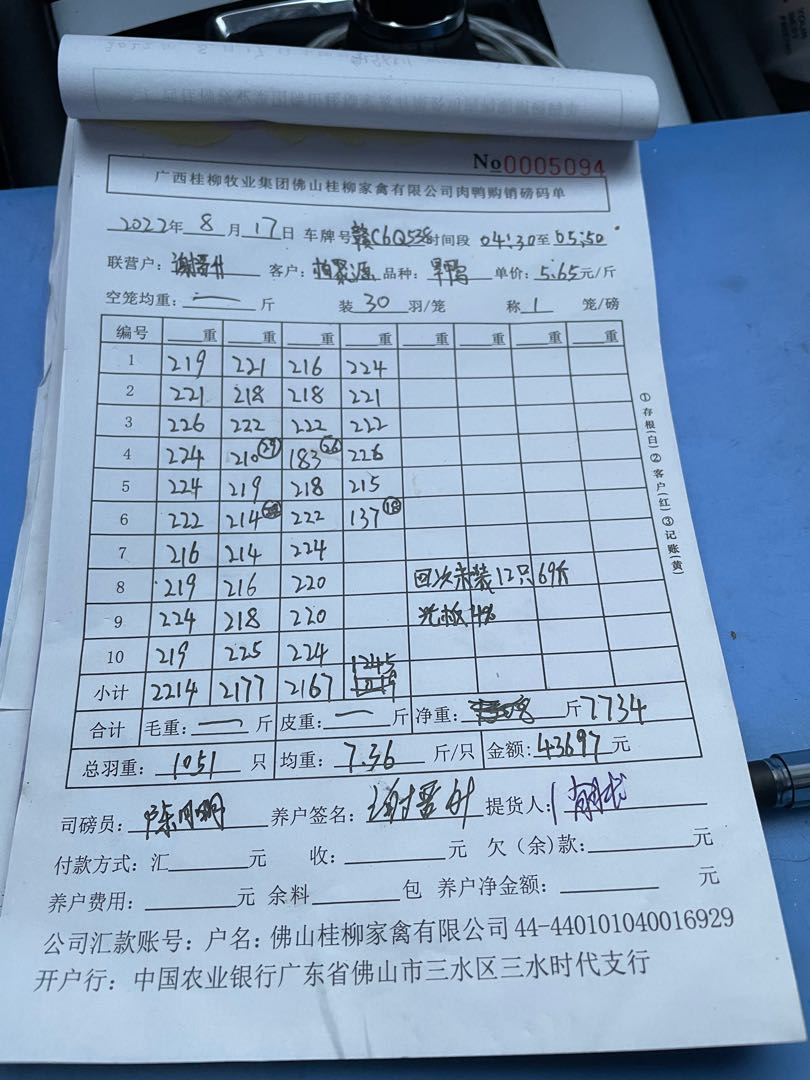 No0005094
广西桂柳牧业集团佛山桂柳家禽有限公司肉鸭购销磅码单
2022年 8 月 17 日 车牌号 赣C6Q538 时间段 04:30 至 05:50
联营户: 客户: 柏聚源 品种: 单价: 5.65 元/斤
空笼均重: 一 斤 装 30 羽/笼 称 1 笼/磅
编号 重 重 重 重 重 重 重 重
1 219 221 216 224
2 221 218 218 221
3 226 222 222 222
4 224 210 (29) 183 226
5 224 219 218 215
6 222 214 222 137 (18)
7 216 214 224
8 219 216 220 回次未装12只69斤
9 224 218 220
10 219 225 224
小计 2214 2177 2167 1245
合计 毛重: 一 斤 皮重: 一 斤 净重: 斤 7734
总羽重: 1051 只 均重: 7.36 斤/只 金额: 43697 元
司磅员: 养户签名: 提货人:
付款方式: 汇 元 收: 元 欠(余)款: 元
养户费用: 元 余料 包 养户净金额: 元
公司汇款账号: 户名: 佛山桂柳家禽有限公司 44-440101040016929
开户行: 中国农业银行广东省佛山市三水区三水时代支行
①存根(白)②客户(红)③记账(黄)